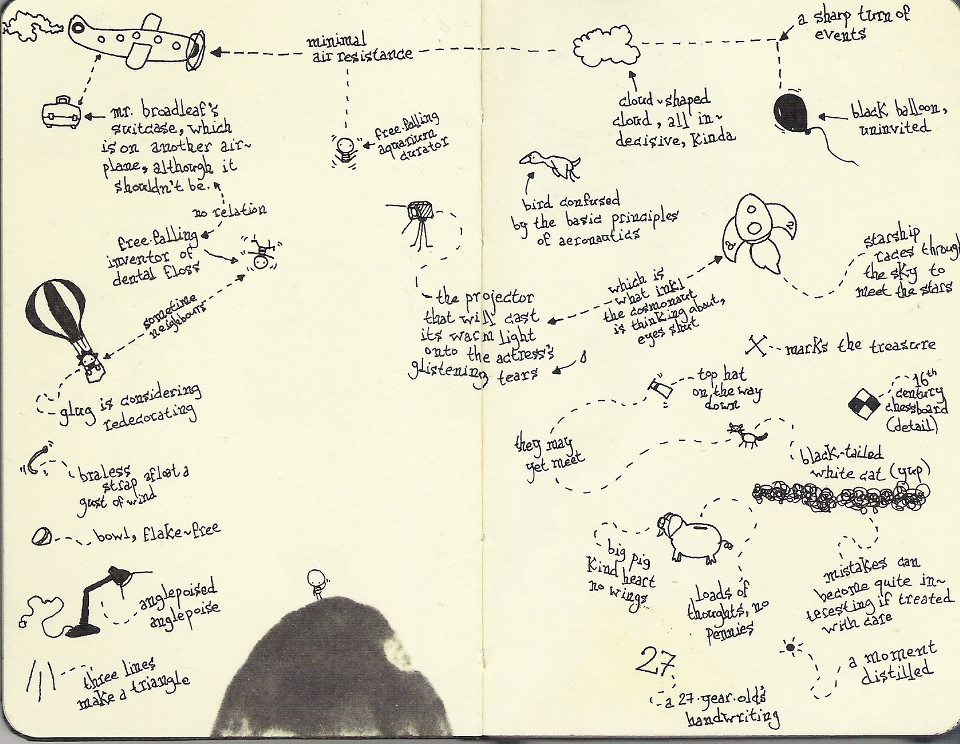 minimal
air resistance
a sharp turn of
events
mr. broadleaf's
suitcase, which
is on another air~
plane, although it
shouldn't be.
free.falling
aquarium
curator
cloud~shaped
cloud, all in~
decisive, kinda
black balloon,
uninvited
no relation
free.falling
inventor of
dental floss
bird confused
by the basic principles
of aeronautics
sometime
neighbours
the projector
that will cast
its warm light
onto the actress's
glistening tears
which is
what inkl
the cosmonaut
is thinking about,
eyes shut
starship
races through
the sky to
meet the stars
marks the treasure
glug is considering
redecorating
top hat
on the way
down
16th
century
chessboard
(detail)
they may
yet meet
black-tailed
white cat (yup)
braless
strap afloat a
gust of wind
bowl, flake~free
big pig
kind heart
no wings
loads of
thoughts, no
pennies
mistakes can
become quite in~
teresting if treated
with care
anglepoised
anglepoise
three lines
make a triangle
27
a 27.year.old's
handwriting
a moment
distilled